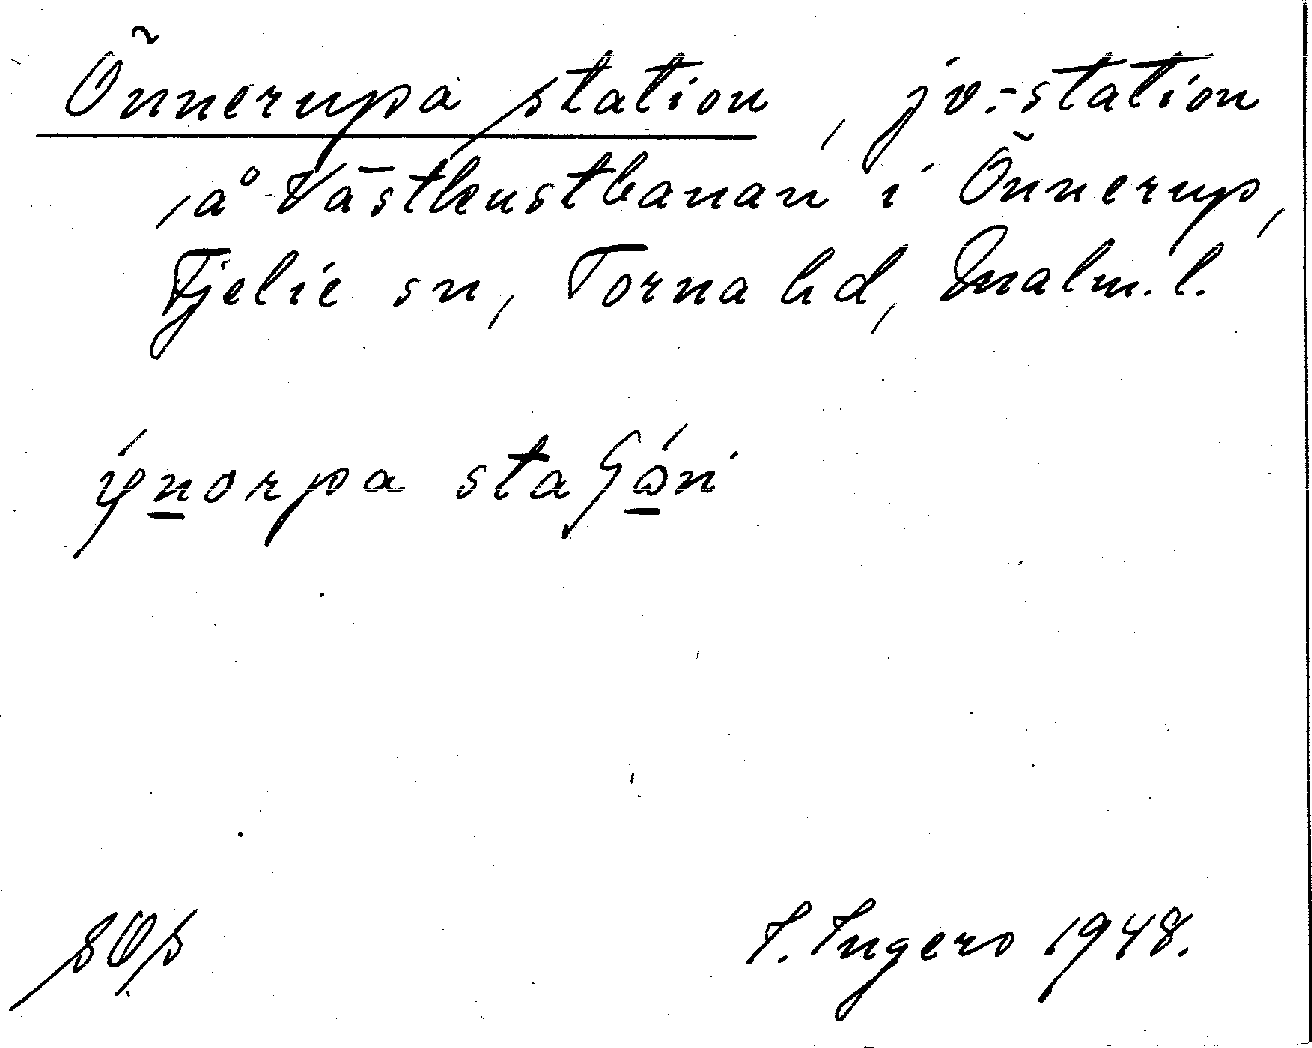 Önnerupa station, jv.-station
å Västkustbanan i Önnerup,
Fjelie sn, Torna hd, Malm. l.
sOs
I. Ingers 1948.